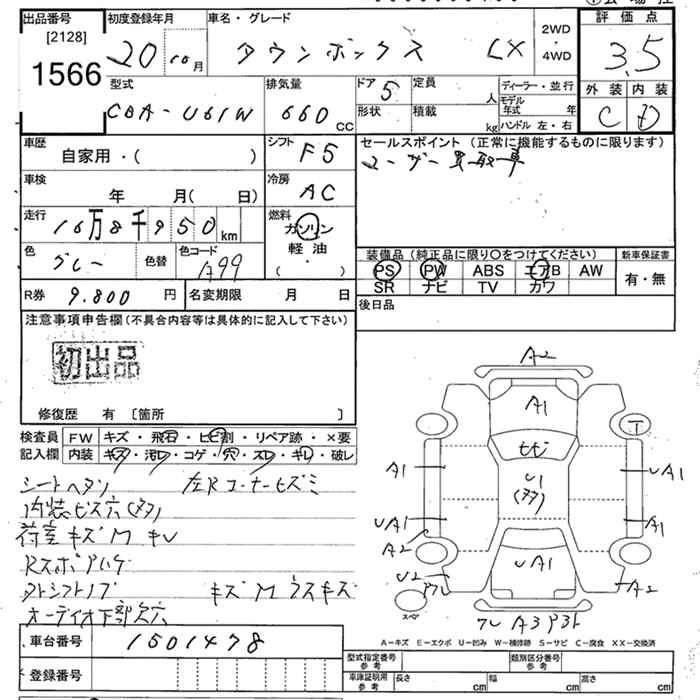 出品番号 初度登録年月 車名・グレード 評価点
[2128]
1566
20 10月 タウンボックス LX 2WD・4WD 3.5
型式 排気量 ドア 定員 ディーラー・並行 外装 内装
CBA-U61W 660 CC 5 人 モデル年式 年 C D
形状 積載 kg ハンドル 左・右
車歴 シフト セールスポイント (正常に機能するものに限ります)
自家用・( ) F5 ユーザー買取車
車検 冷房
年 月( 日) AC
走行 燃料
10万8千950 km ガソリン
軽油
・
( )
色 色替 色コード
グレー A99
装備品(純正品に限り〇をつけてください) 新車保証書
PS PW ABS エアB AW 有・無
SR ナビ TV カワ
R券 9,800 円 名変期限 月 日
後日品
注意事項申告欄(不具合内容等は具体的に記入して下さい)
初出品
修復歴 有 〔箇所 〕
検査員 FW キズ・飛石・ヒビ割・リペア跡・×要
記入欄 内装 キズ・汚レ・コゲ・穴・スレ・キレ・破レ
シートヘタリ 左Rコーナーヒズミ
内装ビス穴(多)
荷室キズM キレ
Rスポハゲ
キズM ウスキズ
オーディオ下部欠穴
A2
A1
ヒビ
U1
(多)
UA1
A1
UA1
A2
U2
UA1
A1
A2
A3
スペア
A-キズ E-エクボ U-凹み W-補修跡 S-サビ C-腐食 XX-交換済
車台番号 1501478
登録番号
型式指定番号 参考 類別区分番号 参考
車庫証明用 参考 長さ cm 幅 cm 高さ cm